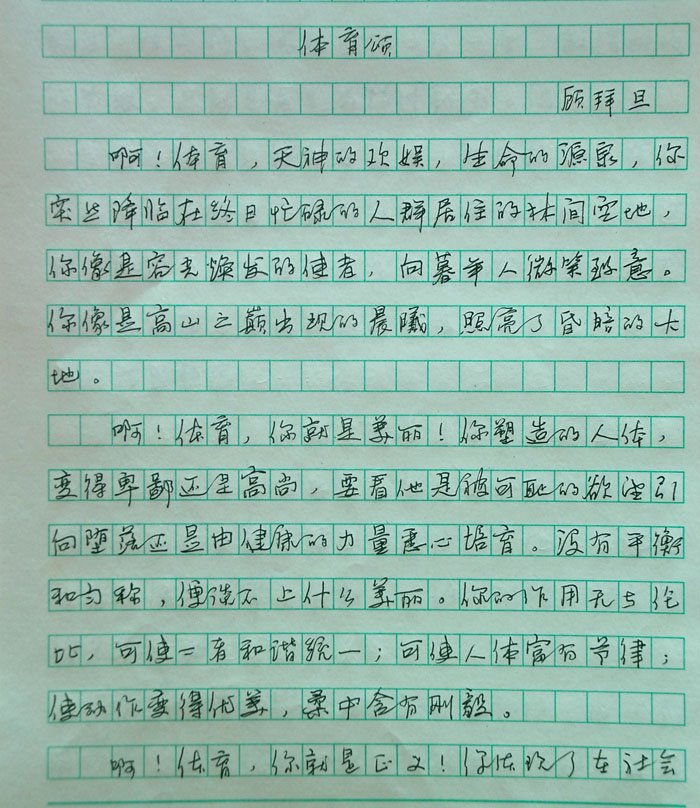 体育颂
顾拜旦
啊！体育，天神的欢娱，生命的源泉，你
突然降临在终日忙碌的人群居住的林间空地，
你像是容光焕发的使者，向暮年人微笑致意。
你像是高山之巅出现的晨曦，照亮了昏暗的大
地。
啊！体育，你就是美丽！你塑造的人体，
变得卑鄙还是高尚，要看他是被可耻的欲望引
向堕落还是由健康的力量悉心培育。没有平衡
和匀称，便谈不上什么美丽。你的作用无与伦
比，可使二者和谐统一；可使人体富有节律；
使动作变得优美，柔中含有刚毅。
啊！体育，你就是正义！你体现了在社会